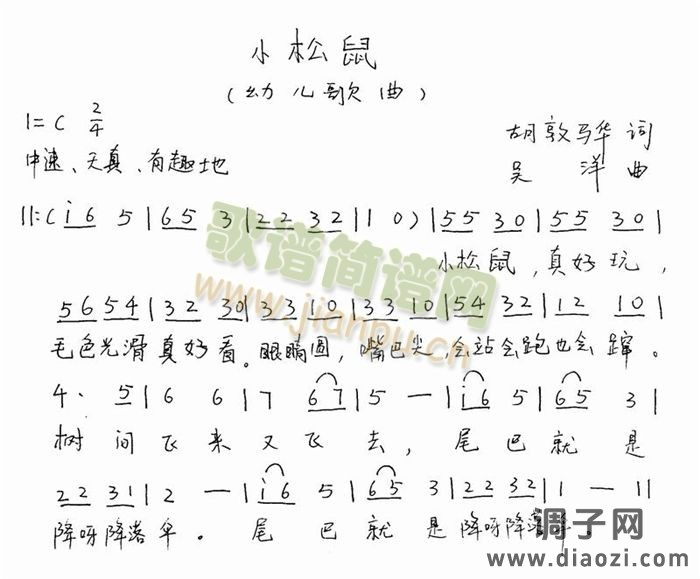 小松鼠
(幼儿歌曲)
1=C 2/4
胡敦马华 词
中速、天真、有趣地
吴 洋 曲
||:(i6 5|65 3|22 32|1 0)|55 30|55 30|
小松鼠,真好玩,
56 54|32 30|33 10|33 10|54 32|12 10|
毛色光滑真好看。眼睛圆,嘴巴尖,会站会跑也会蹿。
4· 5|6 6|7 67|5 —|i6 5|65 3|
树间飞来又飞去,尾巴就是
22 31|2 —|i6 5|65 3|22 32|1 — ||
降呀降落伞。尾巴就是降呀降落伞。
歌谱简谱网
www.jianpu.cn
调子网
www.diaozi.com